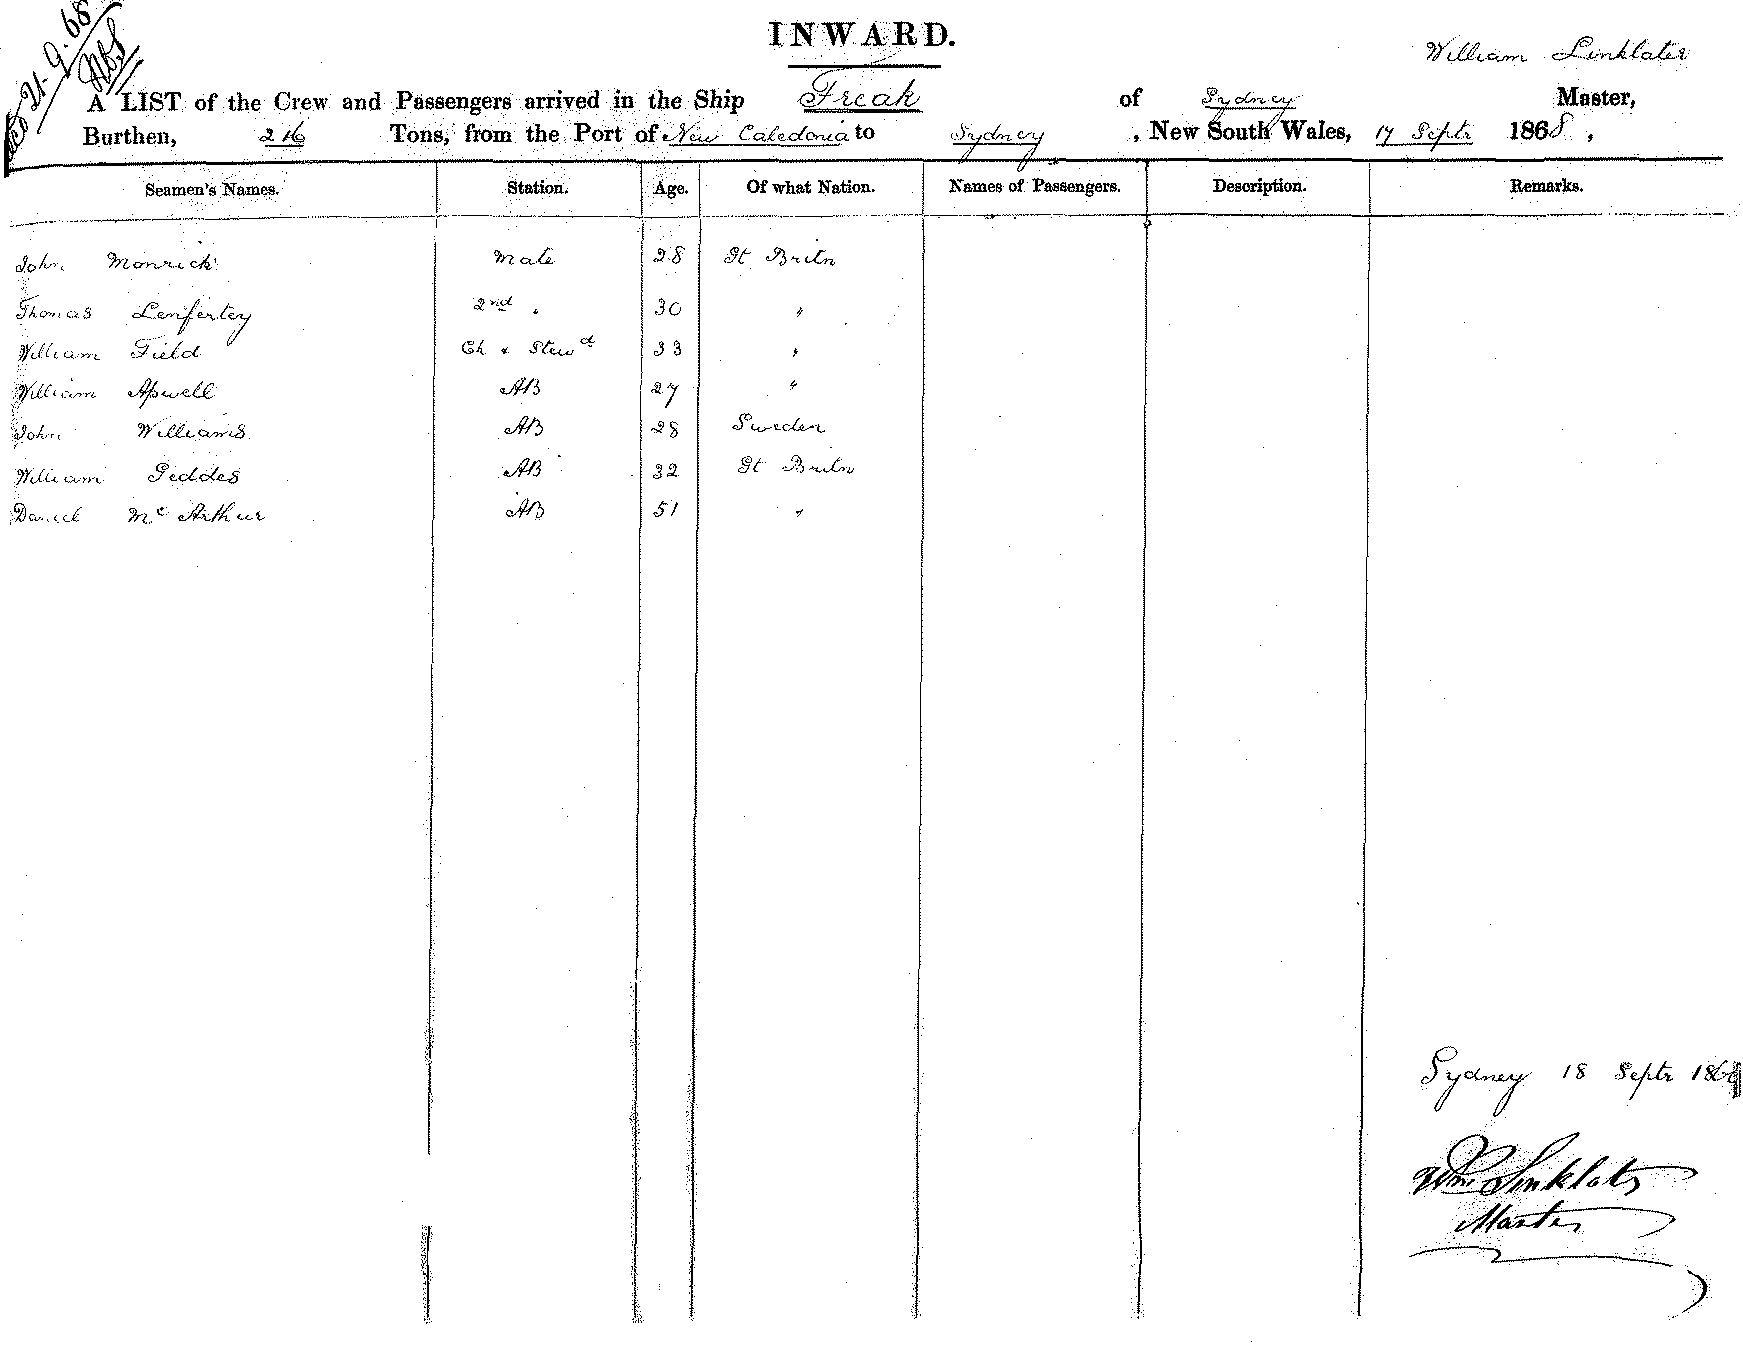 21.9.68
INWARD.
William Linklater
A LIST of the Crew and Passengers arrived in the Ship Freak of Sydney Master,
Burthen, 216 Tons, from the Port of New Caledonia to Sydney , New South Wales, 17 Septr 1868 ,
Seamen's Names. Station. Age. Of what Nation. Names of Passengers. Description. Remarks.
John Monrick Mate 28 Gt Britn
Thomas Lenfertey 2nd " 30 "
William Field Ck & Stewd 33 "
William Apwell AB 27 "
John Williams AB 28 Sweden
William Geddes AB 32 Gt Britn
Daniel Mc Arthur AB 51 "
Sydney 18 Septr 186
Wm Linklater
Master